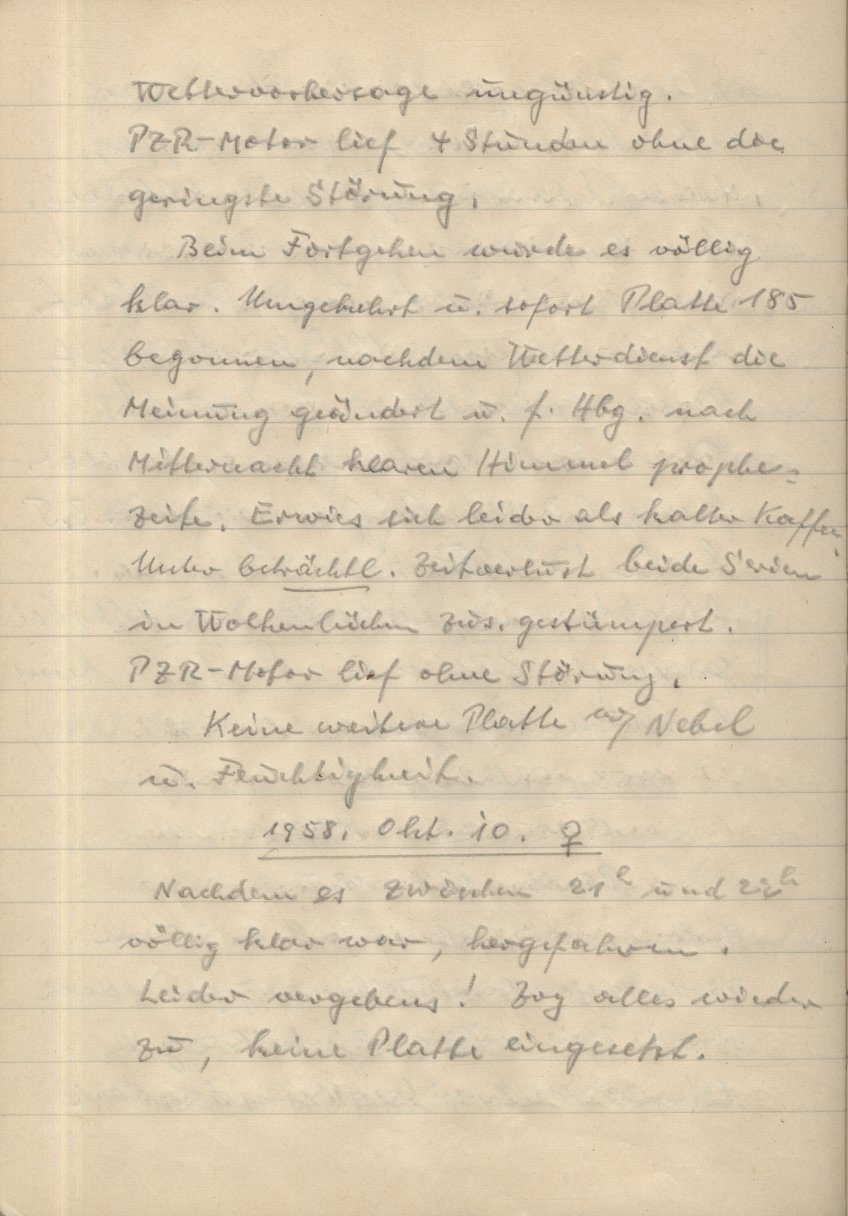 Wettervorhersage ungünstig.
PZR-Motor lief 4 Stunden ohne die
geringste Störung.
Beim Fortgehen wurde es völlig
klar. Umgekehrt u. sofort Platte 185
begonnen, nachdem Wetterdienst die
Meinung geändert u. f. Hbg. nach
Mitternacht klaren Himmel prophe-
zeite. Erwies sich leider als kalter Kaffee.
Unter beträchtl. Zeitverlust beide Serien
in Wolkenlücken zus. gestümpert.
PZR-Motor lief ohne Störung.
Keine weitere Platte wg Nebel
u. Feuchtigkeit.
1958. Okt. 10. ♀
Nachdem es zwischen 21h und 22h
völlig klar war, hergefahren.
Leider vergebens! Zog alles wieder
zu, keine Platte eingesetzt.